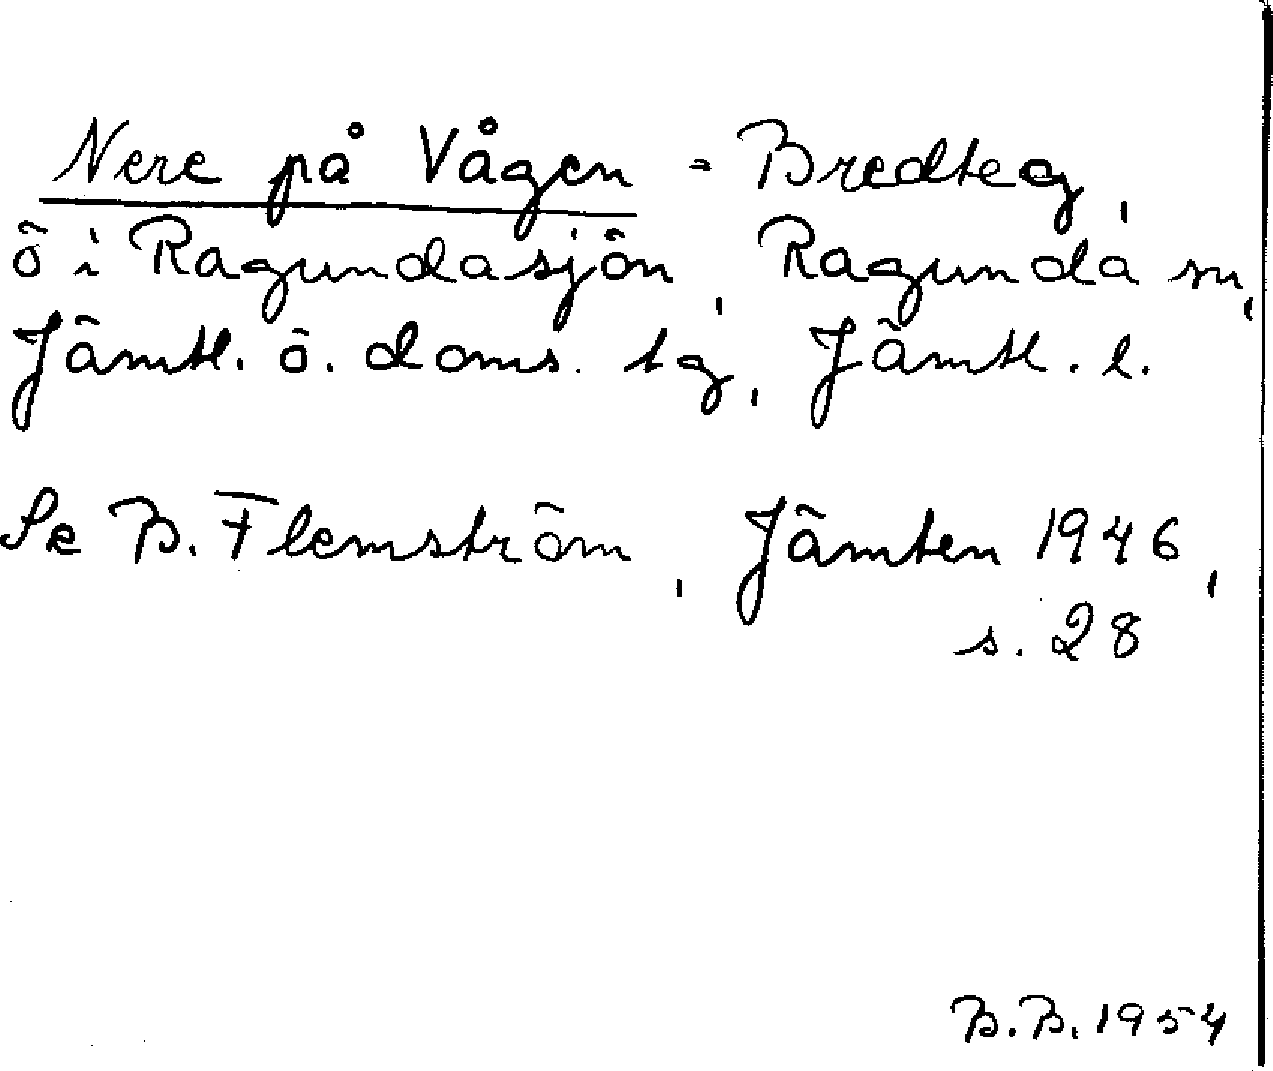 Nere på Vågen = Bredteg,
ö i Ragundasjön, Ragunda sn,
Jämtl. ö. doms. tg, Jämtl. l.
Se B. Flemström, Jämten 1946,
s. 28
B.B. 1954